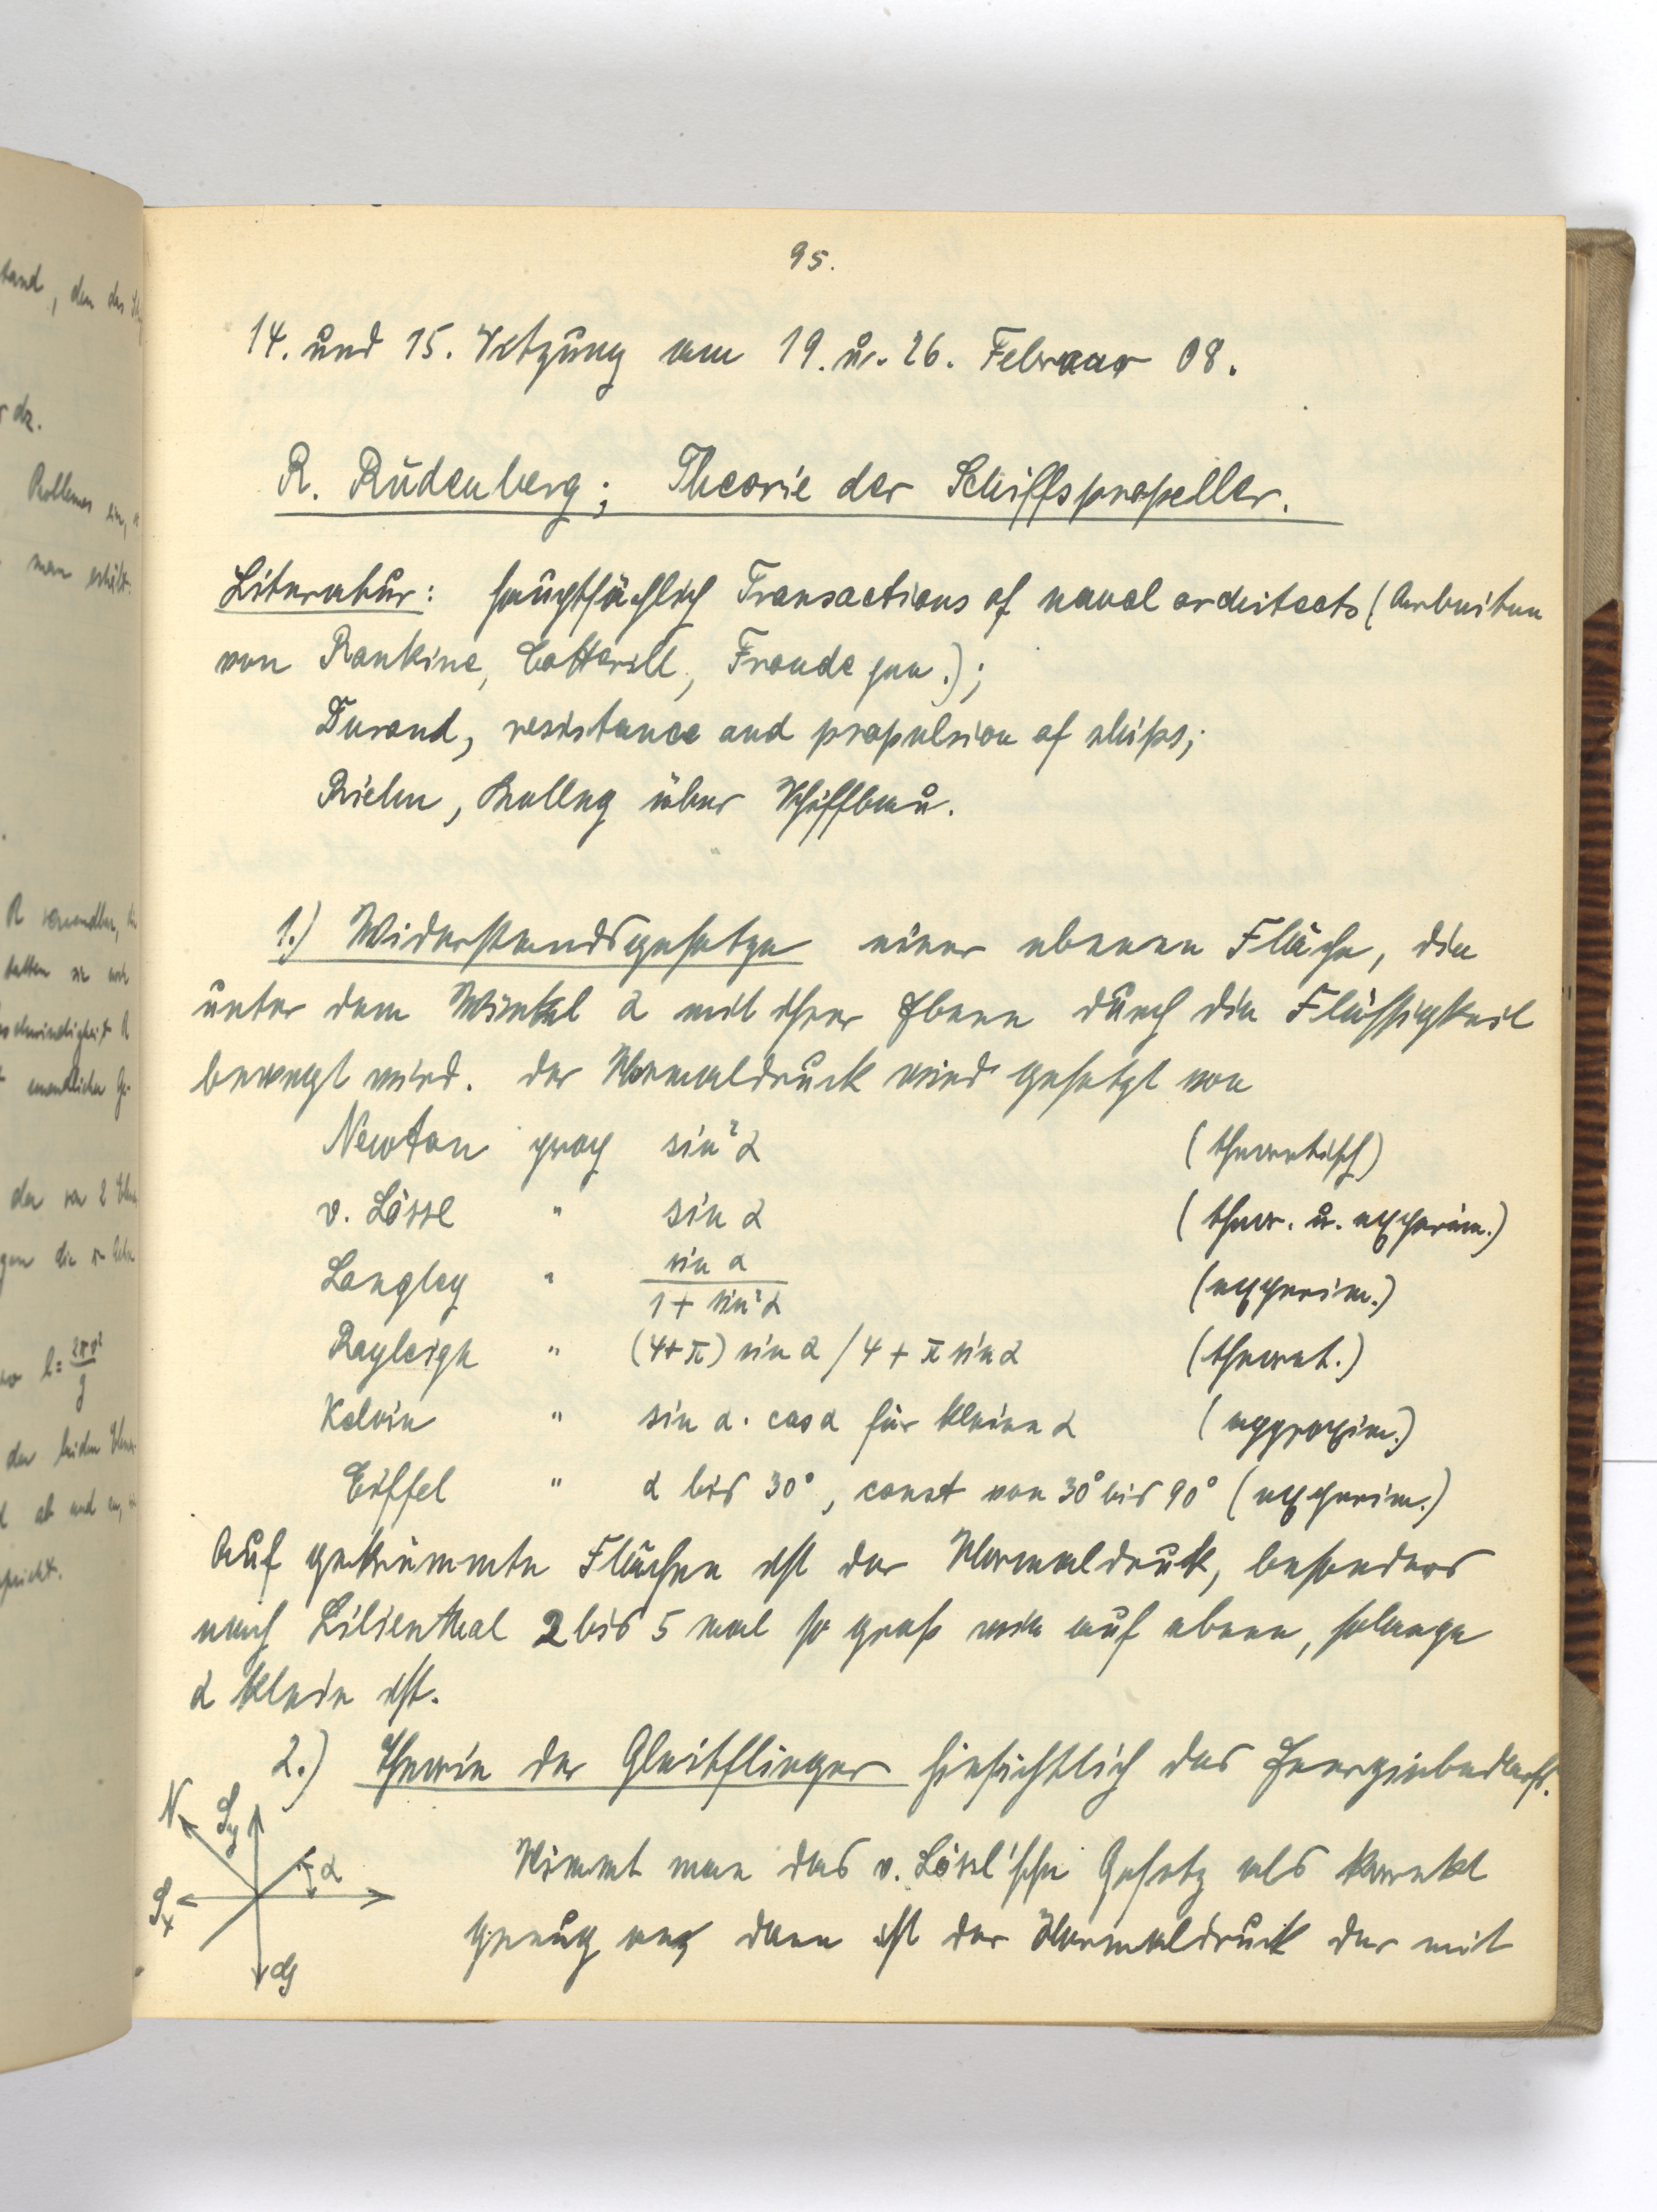 95.
14. und 15. Sitzung am 19. u. 26. Februar 08.
R. Rüdenberg; Theorie der Schiffspropeller.
Literatur: hauptsächlich Transactions of naval architects (Arbeiten
von Rankine, Cotterill, Froude jun.);
Durand, resistance and propulsion of ships;
Riehn, Kolleg über Schiffbau.
1.) Widerstandsgesetze einer ebenen Fläche, die
unter dem Winkel α mit ihrer Ebene durch die Flüssigkeit
bewegt wird. Der Normaldruck wird gesetzt von
Newton prop sin² α (theoretisch)
v. Lössl " sin α (theor. u. experim.)
Langley " sin α / 1 + sin² α (experim.)
Rayleigh " (4+π) sin α / 4 + π sin α (theoret.)
Kelvin " sin α · cos α für kleine α (approxim.)
Eiffel " α bis 30°, const von 30° bis 90° (experim.)
Auf gekrümmte Flächen ist der Normaldruck, besonders
nach Lilienthal 2 bis 5 mal so groß wie auf ebene, solange
α klein ist.
2.) Theorie der Gleitflieger hinsichtlich des Energiebedarfs.
N Sy α
Sx
G
Nimmt man das v. Lössl'sche Gesetz als korrekt
genug an, dann ist der Normaldruck der mit
tand, den des
r dz.
Problemes ein,
man erhält.
R verwandten,
hatten sie auch
der von 2
gen die
wo l = 2πv²/g
der beiden
ab und
spricht.